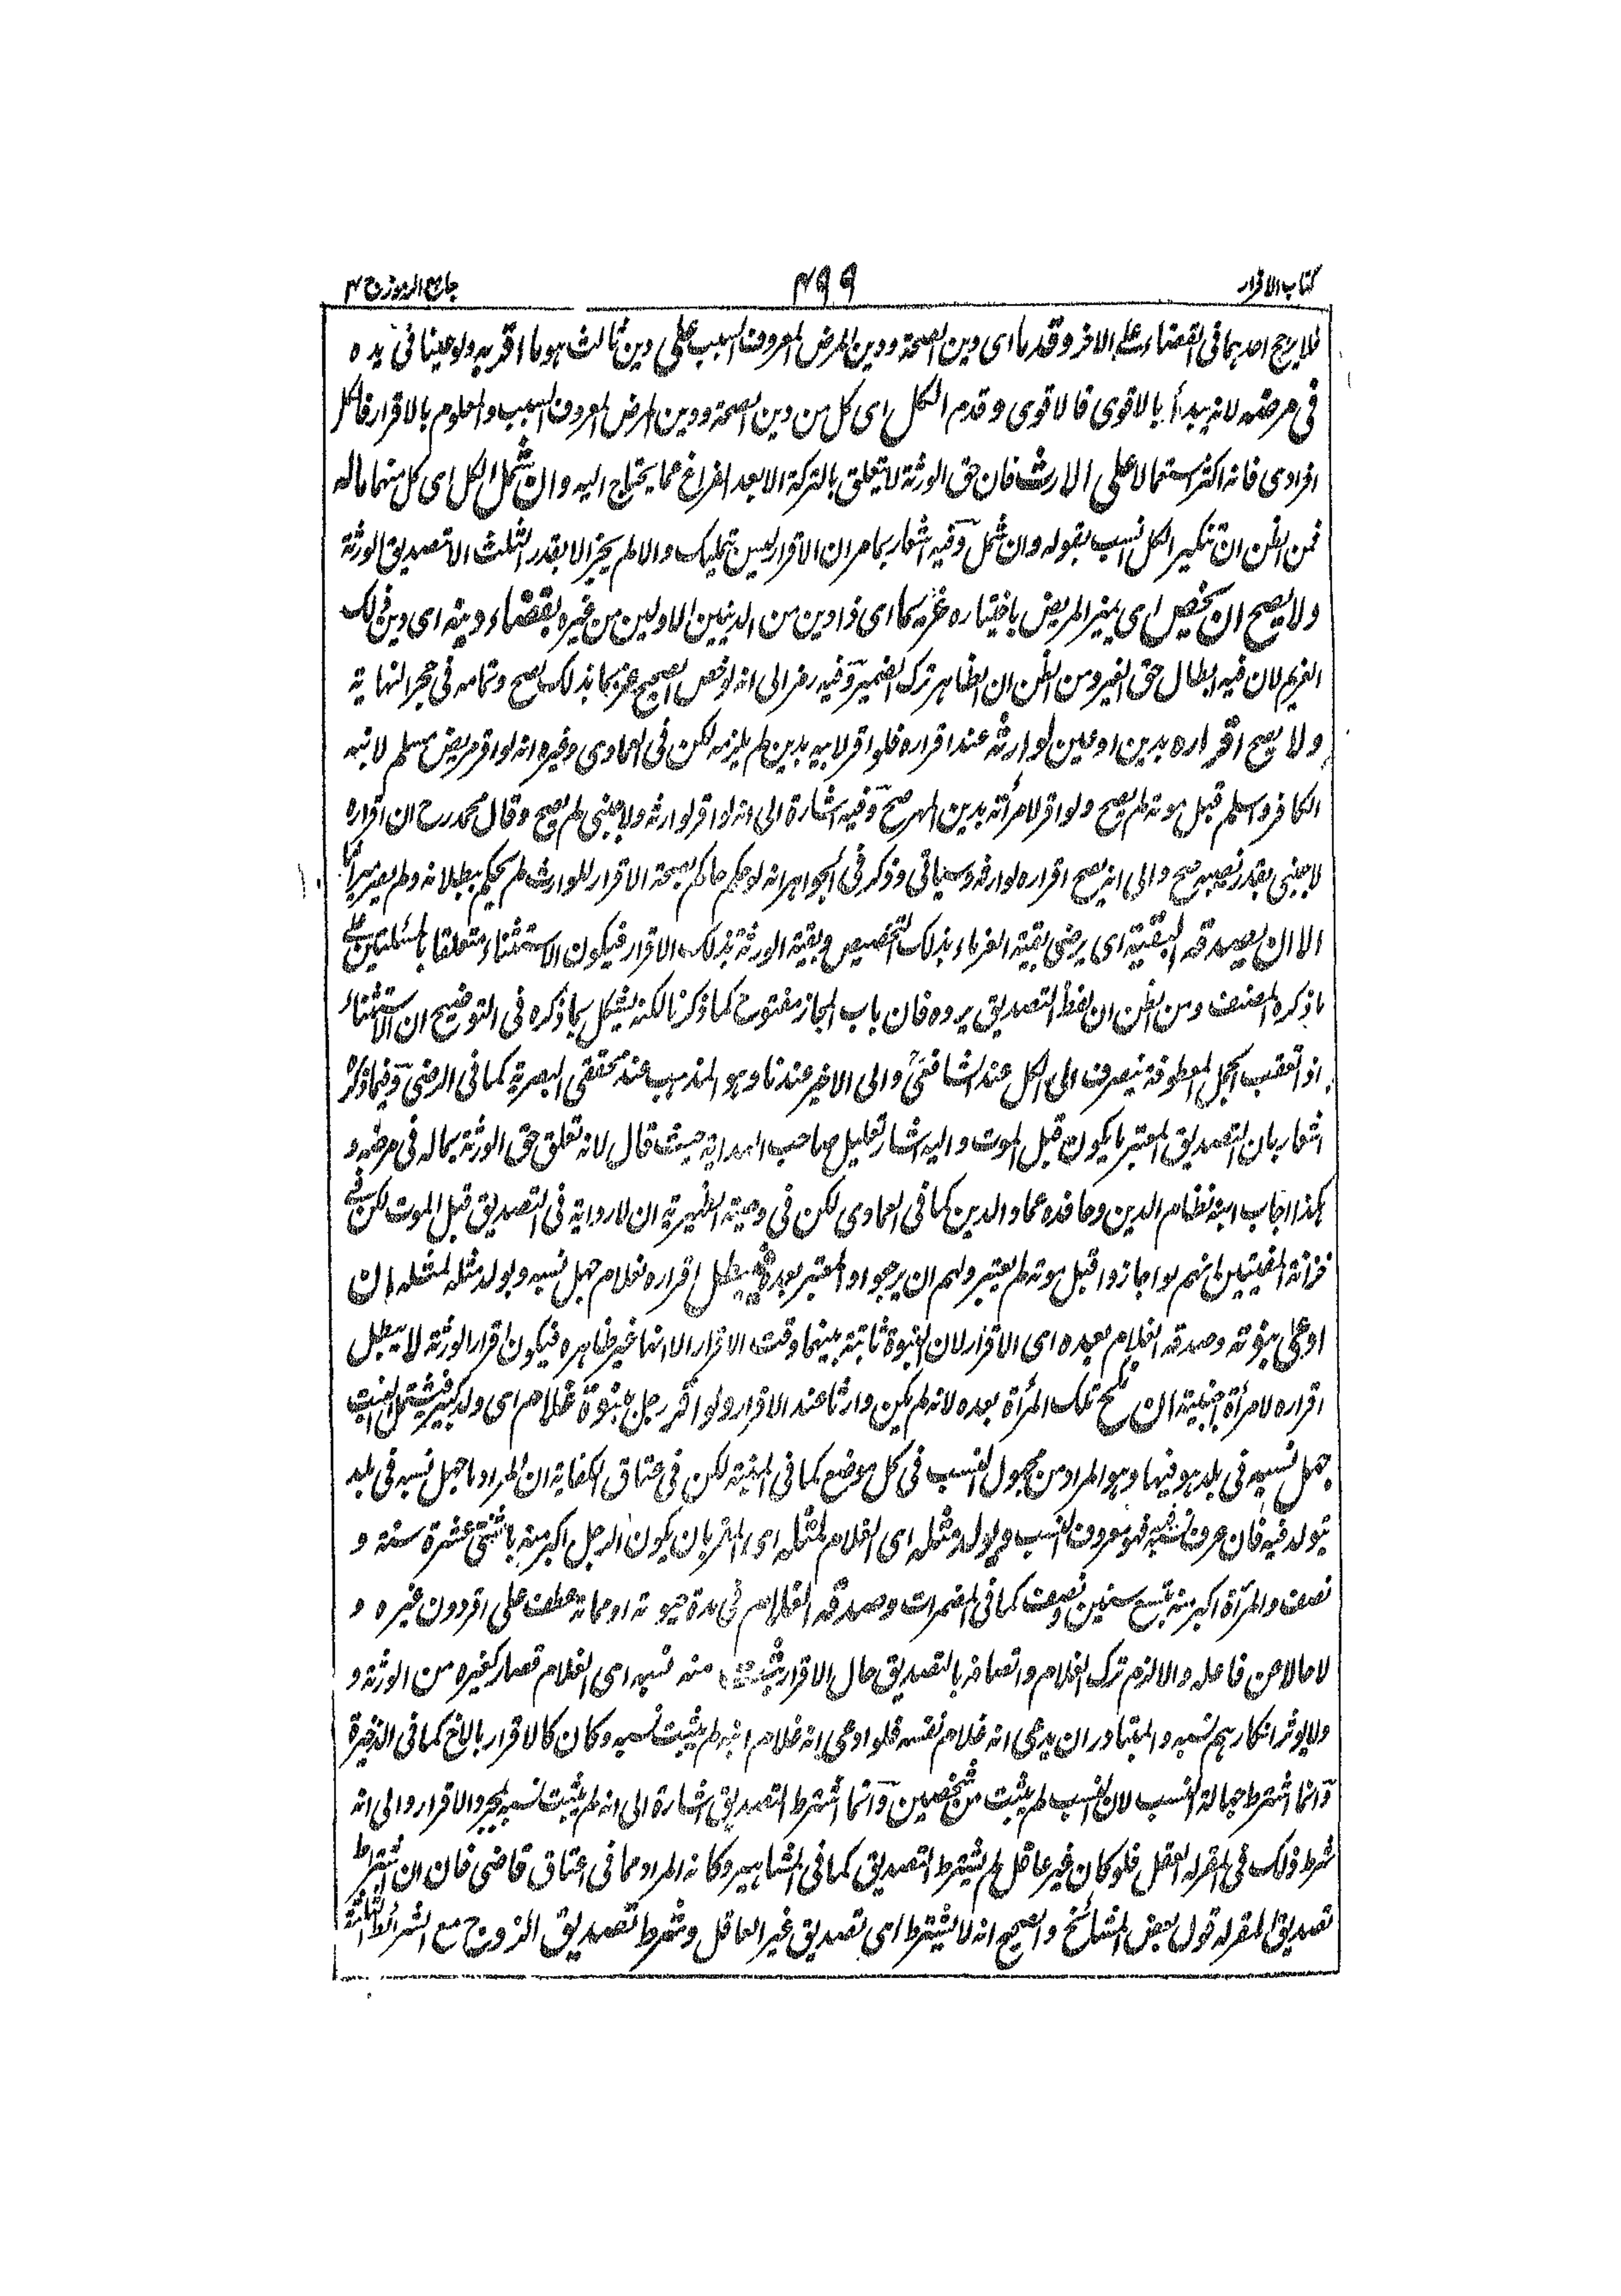 كتاب الاقرار ٤٩٩ جامع الرموز ج ٣
فلا يرجح احدهما فى القضاء على الاخر وقدما اى دين الصحة ودين المرض المعروف السبب على دين ثالث هو ما اقر به ولو عينا فى يده
فى مرضه لانه يبدأ بالاقوى فالاقوى وقدم الكل اى كل من دين الصحة ودين المرض المعروف السبب والمعلوم بالاقرار فالكل
افرادى فانه اكثر استعمالا على الارث فان حق الورثة لا يتعلق بالتركة الا بعد الفراغ عما يحتاج اليه وان شمل الكل اى كل منهما ماله
فمن الظن ان تنكير الكل انسب بقوله وان شمل وفيه اشعار بما مر ان الاقرار ليس بتمليك والا لم يجز الا بقدر الثلث الا تصديق الورثة
ولا يصح ان يخص اى يميز المريض باختياره غريما اى ذا دين من الدينين الاولين من غيره بقضاء دينه اى دين ذلك
الغريم لان فيه ابطال حق الغير ومن الظن ان الظاهر ترك الضمير وفيه رمز الى انه لو خص الصحيح غريما بذلك يصح وتمامه فى حجر النهاية
ولا يصح اقراره بدين او عين لوارثه عند اقراره فلو اقر لابيه بدين لم يلزمه لكن فى العمادى وغيره انه لو اقر مريض مسلم لابنه
الكافر واسلم قبل موته لم يصح ولو اقر لامرأته بدين المهر صح وفيه اشارة الى انه لو اقر لوارثه ولاجنبى لم يصح وقال محمد رح ان اقراره
لاجنبى بقدر نصيبه صح والى انه يصح اقراره لوارثه وسياتى وذكر فى الجواهر انه لو حكم حاكم بصحة الاقرار للوارث لم يحكم ببطلانه ولم يصر
الا ان يصدقه البقية اى يرضى بقية الغرماء بذلك التخصيص وبقية الورثة بذلك الاقرار فيكون الاستثناء متعلقا بالمسئلتين على
ما ذكره المصنف ومن الظن ان لفظ التصديق يرده فان باب المجاز مفتوح كما ذكرنا لكنه يشكل بما ذكره فى التوضيح ان الاستثناء
اذا تعقب الجمل المعطوفة ينصرف الى الكل عند الشافعى والى الاخير عندنا وهو المذهب عند محققى البصرية كما فى الرضى وفيما ذكر
اشعار بان التصديق المعتبر ما يكون قبل الموت واليه اشار تعليل صاحب الهداية حيث قال لانه تعلق حق الورثة بماله فى مرضه و
هكذا اجاب ابنه نظام الدين وحافده عماد الدين كما فى العمادى لكن فى وصية الظهيرية ان لا رواية فى التصديق قبل الموت لكن فى
خزانة المفتيين انهم لو اجازوا قبل موته لم يعتبر ولهم ان يرجعوا والمعتبر بعده فيبطل اقراره لغلام جهل نسبه ويولد مثله لمثله ان
ادعى بنوته وصدقه الغلام بعده اى الاقرار لان البنوة ثابتة بينهما وقت الاقرار الا انها غير ظاهره فيكون اقرار الورثة لا يبطل
اقراره لامرأة اجنبية ان نكح تلك المرأة بعده لانه لم يكن وارثا عند الاقرار ولو اقر رجل ببنوة غلام اى ولد كبير فيشتمل البنت
جهل نسبه فى بلد هو فيها وهو المراد من مجهول النسب فى كل موضع كما فى المنية لكن فى عتاق الكفاية ان المراد ما جهل نسبه فى بلد
تولد فيه فان عرف نسبه فهو معروف النسب ويولد مثله اى الغلام لمثله اى المقر بان يكون الرجل اكبر منه باثنتى عشرة سنة و
نصف والمرأة اكبر منه بتسع سنين ونصف كما فى المضمرات وصدقه الغلام فى مدة حيوته او مماته عطف على اقر دون غيره و
لا حالا من فاعله والا لزم ترك الغلام واتصافه بالتصديق حال الاقرار ثبت منه نسبه اى الغلام فصار كغيره من الورثة و
ولا يؤثر انكارهم نسبه والمتبادر ان يدعى انه غلام نفسه فلو ادعى انه غلام ابنه لم يثبت نسبه وكان كالاقرار بالاخ كما فى الذخيرة
وانما اشترط جهالة النسب لان النسب لم يثبت من شخصين وانما اشترط التصديق اشارة الى انه لم يثبت نسبه بمجرد الاقرار والى انه
شرط ذلك فى المقر له العقل فلو كان غير عاقل لم يشترط التصديق كما فى المشاهير وكانه المراد مما فى عتاق قاضى خان ان اشتراط
تصديق المقر له قول بعض المشائخ والصحيح انه لا يشترط اى تصديق غير العاقل وشرط تصديق الزوج مع الشرائط الثلثة